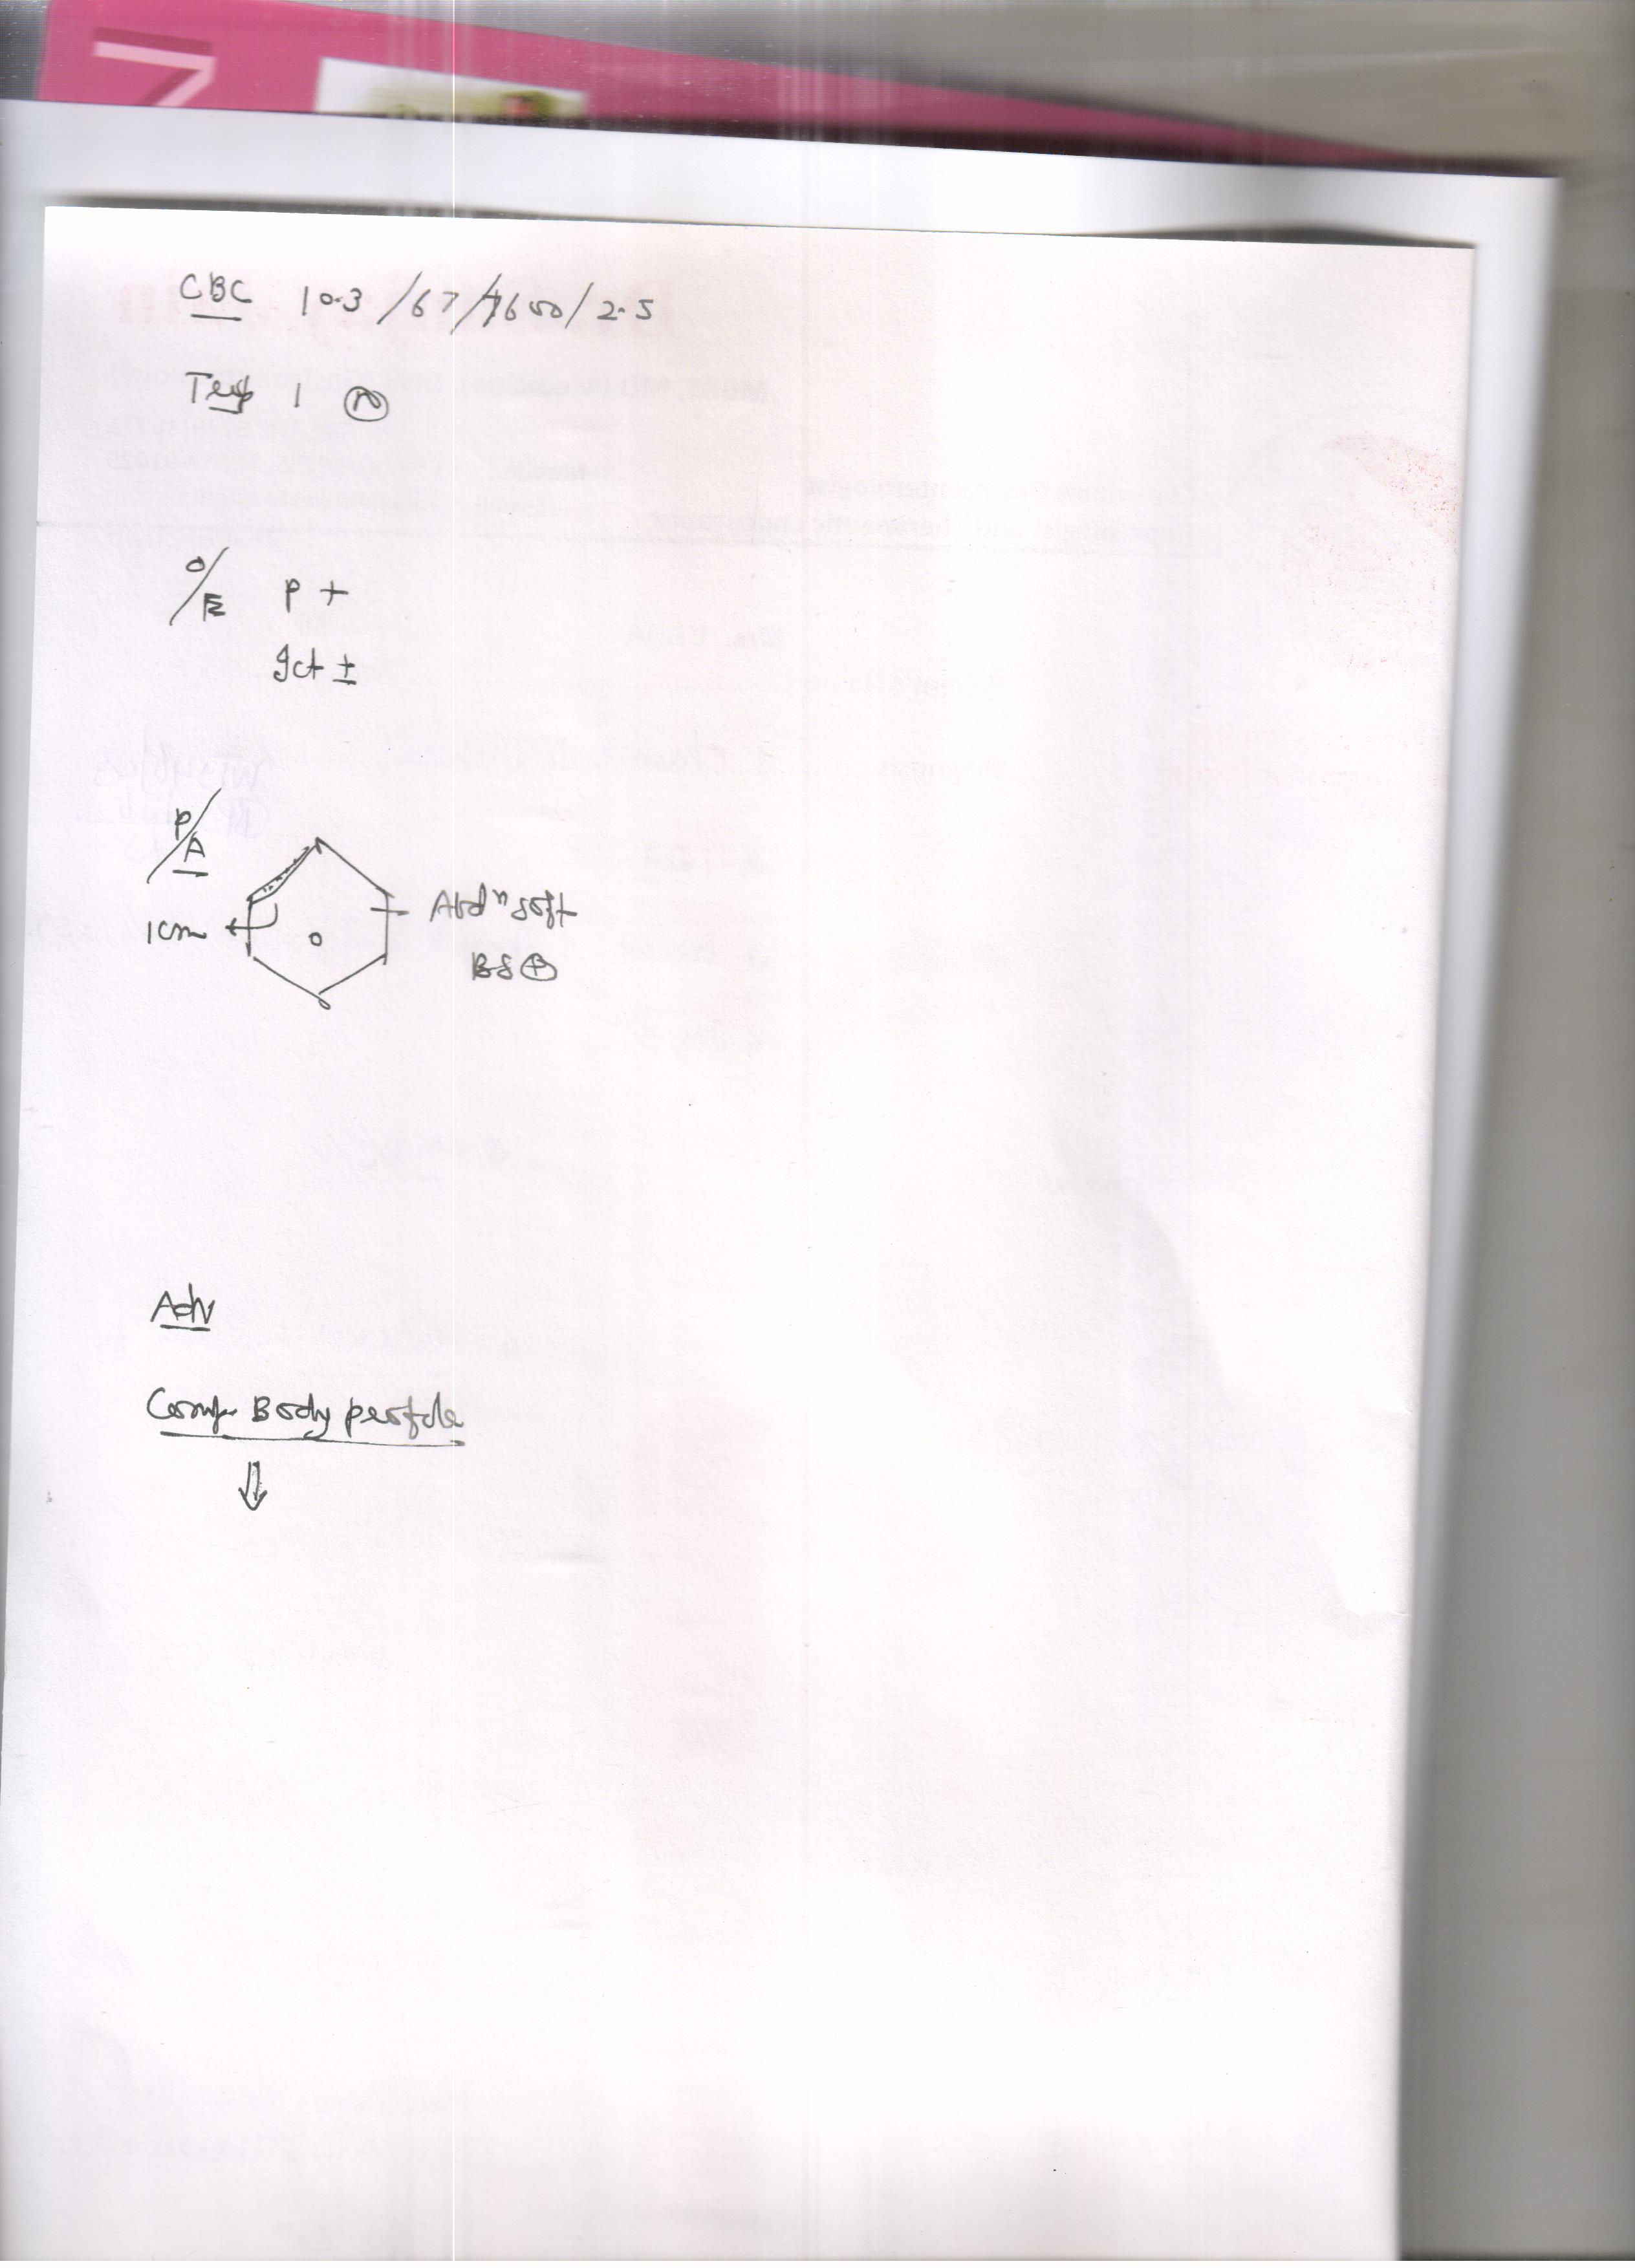 7
CBC 10.3 / 67 / 7600 / 2.5
1 N
O/E P +
Ict ±
P/A
Abdn soft
1cm
BS +
Adv
Comp. Body profile